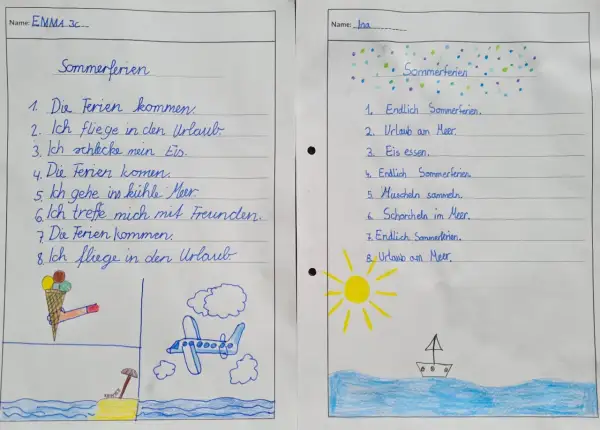 Name: EMMA 3c
Sommerferien
1. Die Ferien kommen.
2. Ich fliege in den Urlaub
3. Ich schlecke mein Eis.
4. Die Ferien komen.
5. Ich gehe ins kühle Meer
6. Ich treffe mich mit Freunden.
7. Die Ferien kommen.
8. Ich fliege in den Urlaub
Name: Ina
Sommerferien
1. Endlich Sommerferien.
2. Urlaub am Meer.
3. Eis essen.
4. Endlich Sommerferien.
5. Muscheln sammeln.
6. Schorcheln im Meer.
7. Endlich Sommerferien.
8. Urlaub am Meer.